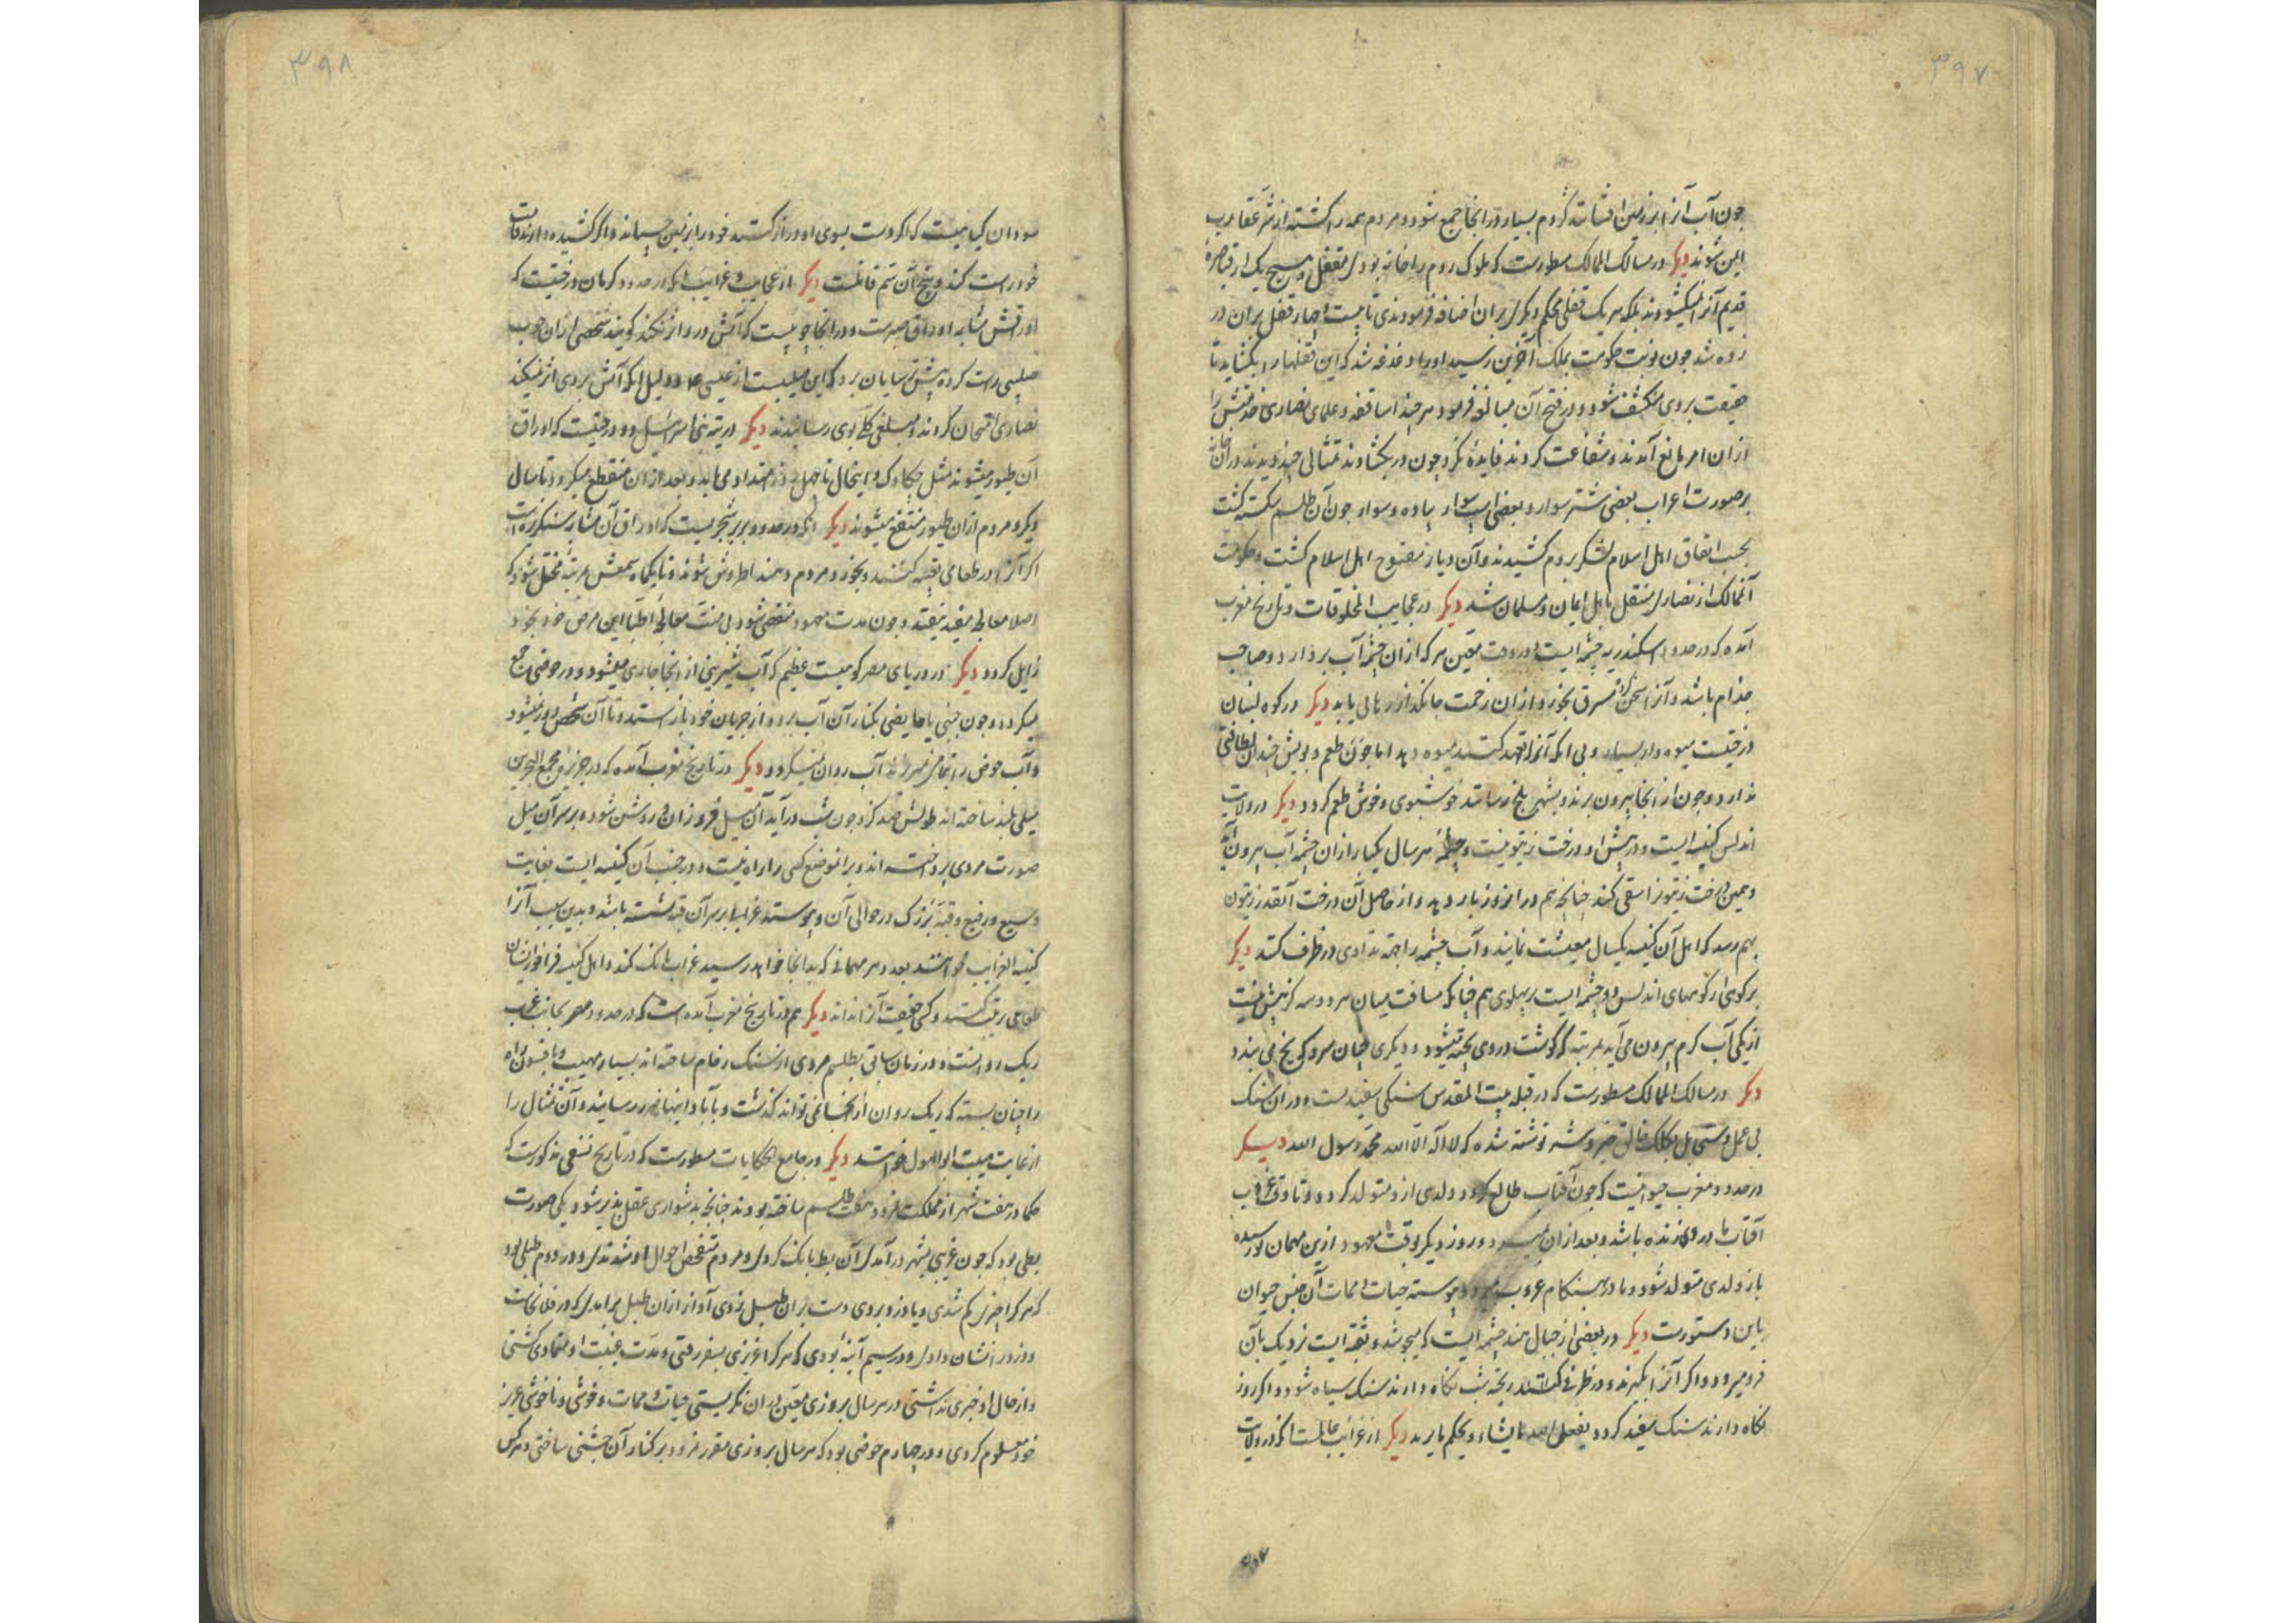 ۳۹۷
چون آب آنرا بر زمین افشانند کژدم بسیار در آنجا جمع شود و مردم همه را کشته از شر عقارب
ایمن شوند دیگر در مسالک الممالک مسطورست که ملوک روم را خانه بودی مقفل و هیچ یک از قیاصره
قدیم آنرا نمیکشودند بلکه هر یک قفلی محکم دیگر بران اضافه فرمودندی تا بیست و چهار قفل بران در
زده شد چون نوبت حکومت بملک آخرین رسید او را دغدغه شد که این قفلها را بکشاید تا
حقیقت بروی منکشف شود و در فتح آن مبالغه فرمود هر چند اساقفه و علمای نصاری
ازان امر مانع آمدند و شفاعت کردند فایده نکرد چون در بکشاوند تمثالی چند دیدند در آن خانه
بر صورت اعراب بعضی شتر سوار و بعضی اسب سوار پیاده و سوار چون آن طلسم شکسته گشت
بحسب اتفاق اهل اسلام لشکر بروم کشیدند و آن دیار مفتوح اهل اسلام گشت و حکومت
آنممالک از نصاری منتقل باهل ایمان و مسلمان شد دیگر در عجایب المخلوقات و تاریخ مغرب
آمده که در حدود اسکندریه چشمه ایست در وقت معین هر که ازان چشمه آب بردارد و صاحب
جذام باشد و آنرا بخورد و ازان زحمت جانگداز رهائی یابد دیگر در کوه لبنان
درختیست میوه دار بسیار و بی انکه آنرا تعهد کنند میوه دهد اما چون طعم و بویش چندان لطافتی
ندارد و چون از آنجا بیرون برند و بشهر بلخ رسانند خوشبوی و خوش طعم گردد دیگر در ولایت
اندلس کنیسه ایست و در پیش او درخت زیتونیست و چشمه هر سال یکبار ازان چشمه آب بیرون آید
و همین درخت زیتون را سقی کند چنانچه هم در انروز بار دهد و از حاصل آن درخت آنقدر زیتون
بهم رسد که اهل آن کنیسه یکسال معیشت نمایند و آب چشمه را بجهة تداوی در ظرف کنند دیگر
بر کوهی از کوههای اندلس دو چشمه ایست بپهلوی هم چنانکه مسافت میان هر دو سه گز بیش نیست
از یکی آب گرم بیرون می آید بمرتبه که گوشت در وی پخته میشود و دیگری چنان سرد که یخ می بندد
دیگر در مسالک الممالک مسطورست که در قبله بیت المقدس سنگی سفیدست و در ان سنگ
بی عمل دستی بل بکلک خالق خیر و شر نوشته شده که لا اله الا الله محمد رسول الله دیگر
در حدود مغرب حیوانیست که چون آفتاب طالع گردد ولدی ازو متولد گردد و تا وقت غروب
آفتاب مادر وی زنده باشد و بعد ازان بمیرد و روز دیگر بوقت معهود ازین مهمان نو رسیده
باز ولدی متولد شود و مادر بهنگام غروب بمیرد و پیوسته حیات و ممات آن جنس حیوان
باین دستورست دیگر در بعضی از جبال هند چشمه ایست که میجوشد و ثقبه ایست نزدیک بآن
فرو میرود و اگر آنرا بگیرند و در ظرفی ریخته شب نگاه دارند سنگ سیاه شود و اگر روز
نگاه دارند سنگ سفید گردد یفعل الله ما یشاء و یحکم ما یرید دیگر از غرایب انکه در ولایت
۳۹۸
سودان گیاهیست که اگر دست بسوی او دراز کنند خود را بر زمین چسپاند و اگر کشیده دارند قامت
خود راست کند و بیخ آن سم قاتلست دیگر از عجایب و غرایب انکه در حدود کرمان درختیست که
اوراقش مشابه اوراق صبرست و در انجا چوبیست که آتش در و اثر نکند گویند شخصی ازان چوب
صلیبی راست کرده پیش ترسایان برد که این صلیبیست از عیسی ع و دلیل انکه آتش بروی اثر نمیکند
نصاری امتحان کردند و مبلغی کلی بوی رسانیدند دیگر در تیه بنی اسرائیل دو درختیست که اوراق
آن طیور میشوند مثل چکاوک و اینحال تا چهل روز امتداد می یابد و بعد ازان منقطع میگردد تا سال
دیگر و مردم ازان طیور منتفع میشوند دیگر انکه در حدود بربر شجریست که اوراق آن
اگر آنرا در طعامی تعبیه کنند و بخورد مردم دهند اطروش شوند و تا یکماه سمعش بمرتبه مختل شود که
اصلا معالجه مفید نیفتد و چون مدت معهود منقضی شود بی منت معالجه اطبا این مرض خود بخود
زایل گردد دیگر در دریای مصر کوهیست عظیم که آب شیرینی از انجا جاری میشود و در حوضی جمع
میگردد و چون جنبی یا حایضی بکنار آن آب برود از جریان خود باز استد و تا آن شخص دور نمیشود
و آب حوض را تمامی نمیریزند آب روان نمیگردد دیگر در تاریخ مغرب آمده که در جزیره مجمع البحرین
میلی بلند ساخته اند طولش صد گز و چون شب درآید آن میل فروزان و روشن شود و بر سر آن میل
صورت مردی پرداخته اند و بر انموضع کسی را راه نیست و در جنب آن کنیسه ایست بغایت
وسیع و رفیع و قبه بزرگ در حوالی آن و پیوسته غرابی بر سر آن قبه نشسته باشد و بدین سبب آنرا
کنیسه الغراب خوانند بعدد هر مهمانی که بدانجا خواهد رسید غراب بانگ کند و اهل کنیسه فراخور ایشان
طعامی مرتب کنند و کسی حقیقت آنرا نداند دیگر هم در تاریخ مغرب آمده است که در حدود مصر بجانب مغرب
ریک روانست و در زمان سابق بطلسم مردی از سنگ رخام ساخته اند بسیار مهیب و بافسون راه
را چنان بسته که ریک روان از انجا نمی تواند گذشت و بآبادانیها ضرر رسانید و آن تمثال را
از غایت هیبت ابوالهول خوانند دیگر در جامع الحکایات مسطورست که در تاریخ نسفی مذکورست که
حکما در هفت شهر از مملکت نمرود هفت طلسم ساخته بودند چنانچه بدشواری عقل پذیر شود یکی صورت
بطی بود که چون غریبی بشهر درآمدی آن بط بانگ کردی و مردم متفحص احوال او شدندی و در دوم طبلی بود
که هر کرا چیزی گم شدی و یا دزد بردی دست بران طبل زدی آواز ازان طبل برآمدی که در فلانجاست
و دزد را نشان دادی و در سیم آینه بودی که هر کرا عزیزی بسفر رفتی و مدت غیبت او متمادی گشتی
و از حال او خبری نداشتی در هر سال بروزی معین دران نگریستی حیات و ممات و خوشی و ناخوشی عزیز
خود معلوم کردی و در چهارم حوضی بود که هر سال بروزی مقرر نمرود بر کنار آن جشنی ساختی و هر کس